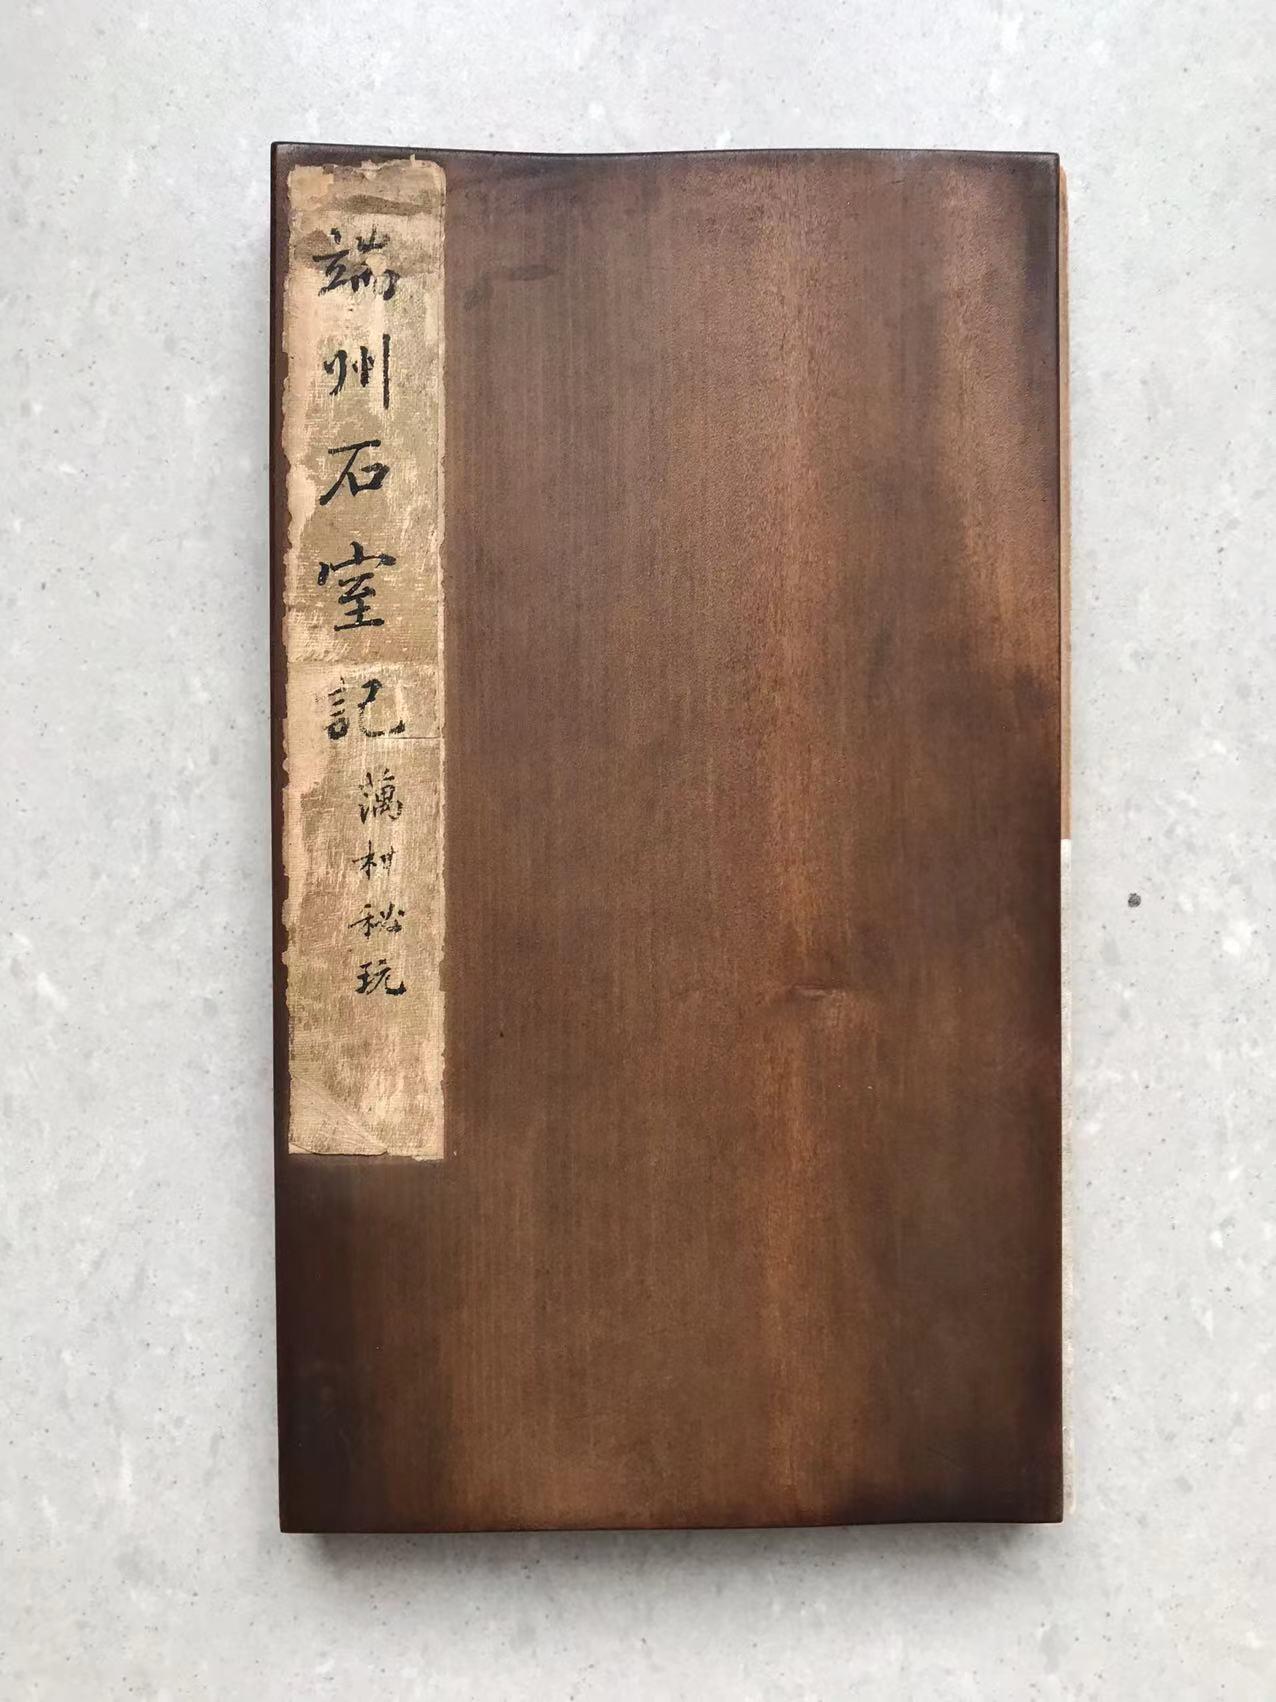 端州石室記
藕村秘玩